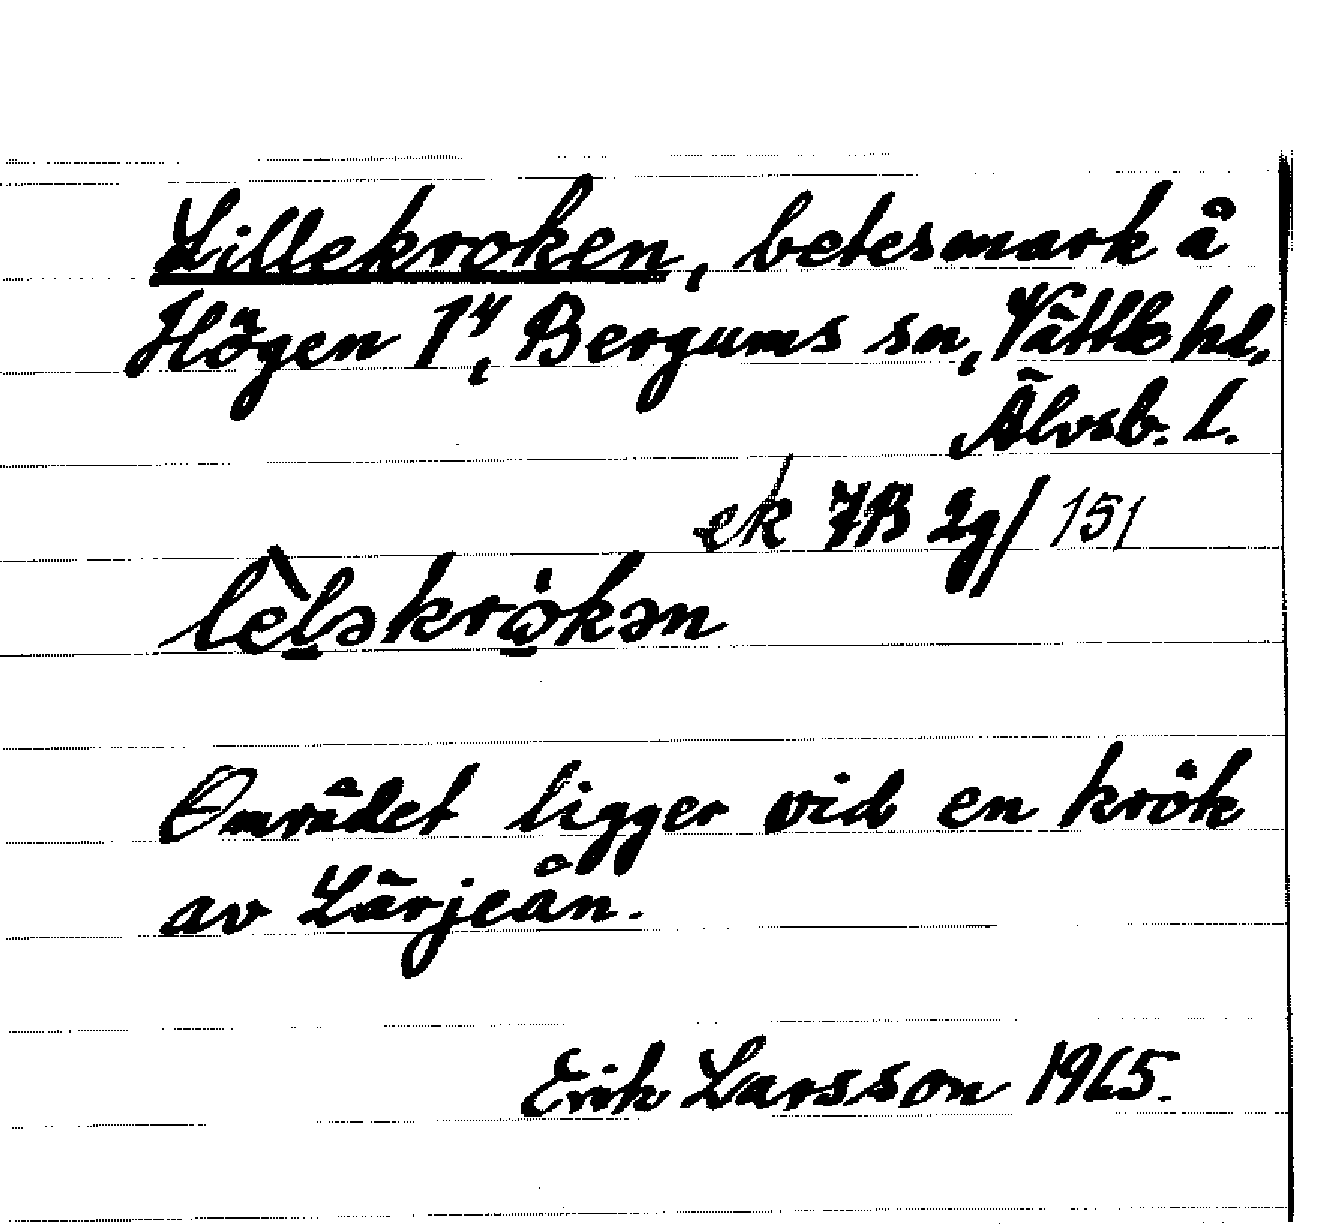 Lillekroken, betesmark å
Högen 1⁴, Bergums sn, Vättle hd,
Älvsb. l.
ek 7B 2g/151
lèl̠əkrȯ̠kən
Området ligger vid en krök
av Lärjeån.
Erik Larsson 1965.